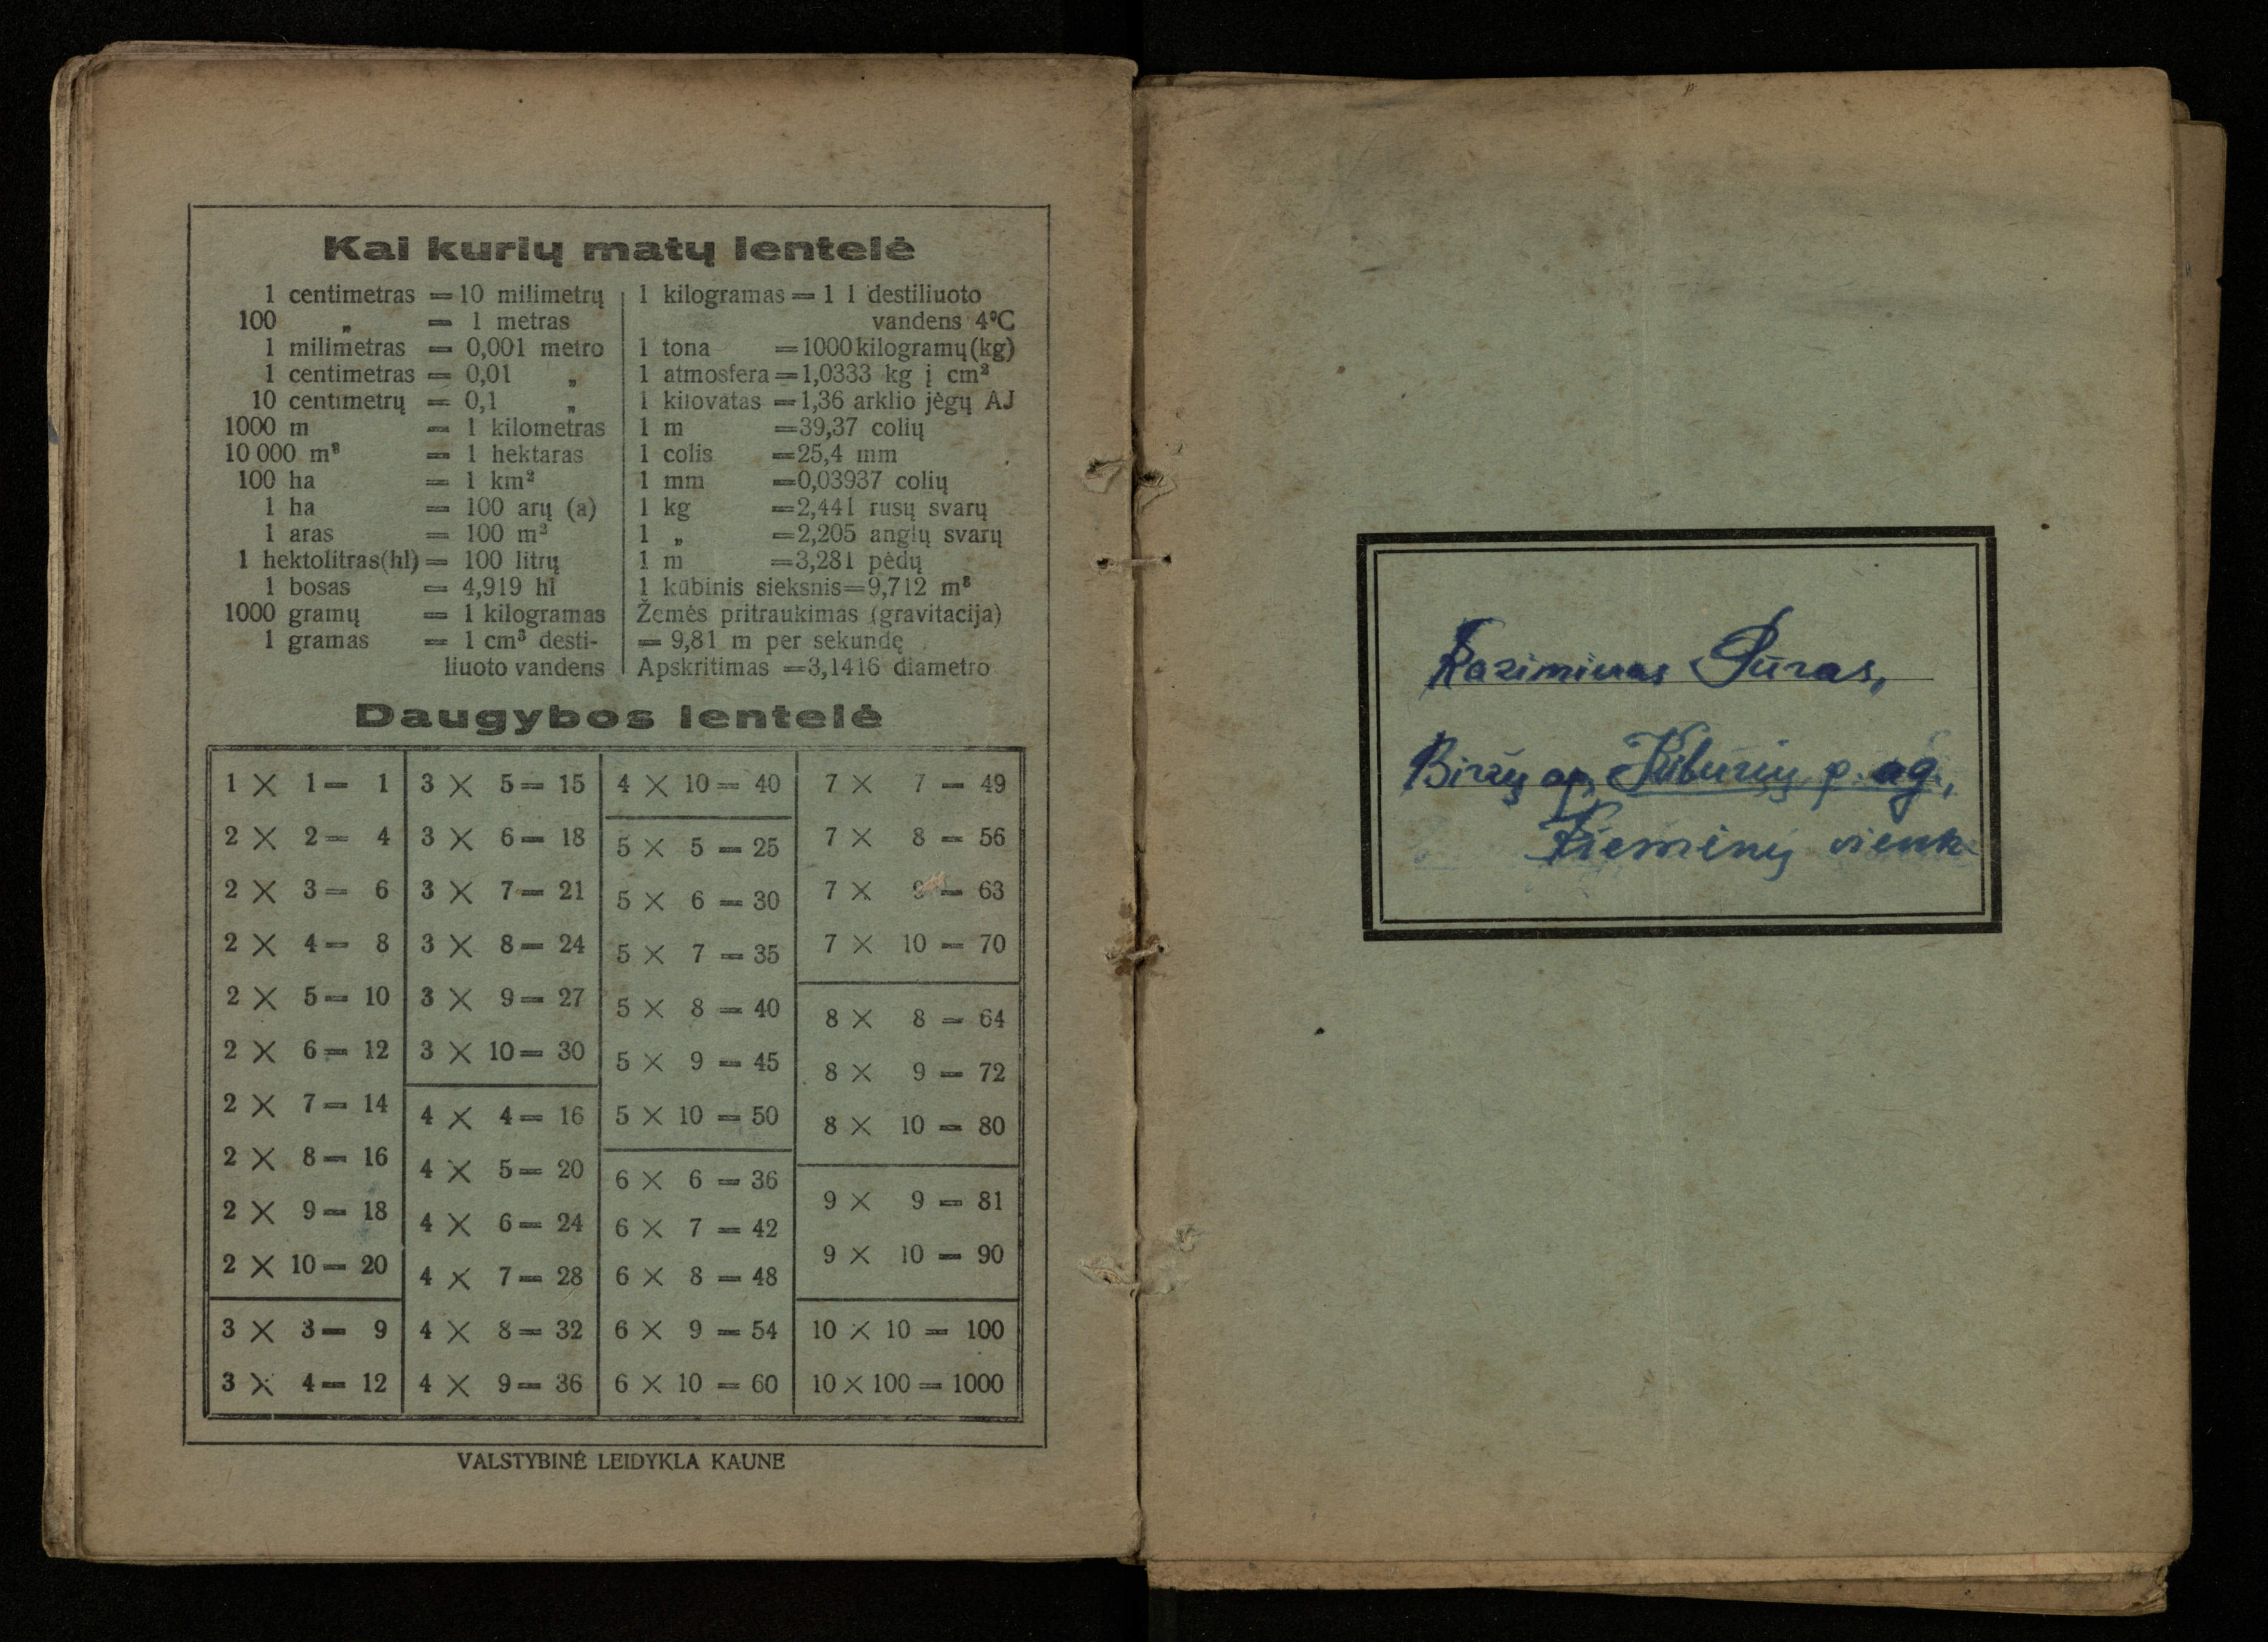 Kai kurių matų lentelė
1 centimetras = 10 milimetrų
100 „ = 1 metras
1 milimetras = 0,001 metro
1 centimetras = 0,01 „
10 centimetrų = 0,1 „
1000 m = 1 kilometras
10 000 m² = 1 hektaras
100 ha = 1 km²
1 ha = 100 arų (a)
1 aras = 100 m²
1 hektolitras(hl) = 100 litrų
1 bosas = 4,919 hl
1000 gramų = 1 kilogramas
1 gramas = 1 cm³ desti-
liuoto vandens
1 kilogramas = 1 l destiliuoto
vandens 4°C
1 tona = 1000 kilogramų (kg)
1 atmosfera = 1,0333 kg į cm²
1 kilovatas = 1,36 arklio jėgų AJ
1 m = 39,37 colių
1 colis = 25,4 mm
1 mm = 0,03937 colių
1 kg = 2,441 rusų svarų
1 „ = 2,205 anglų svarų
1 m = 3,281 pėdų
1 kūbinis sieksnis = 9,712 m³
Žemės pritraukimas (gravitacija)
= 9,81 m per sekundę
Apskritimas = 3,1416 diametro
Daugybos lentelė
1 × 1 = 1
2 × 2 = 4
2 × 3 = 6
2 × 4 = 8
2 × 5 = 10
2 × 6 = 12
2 × 7 = 14
2 × 8 = 16
2 × 9 = 18
2 × 10 = 20
3 × 3 = 9
3 × 4 = 12
3 × 5 = 15
3 × 6 = 18
3 × 7 = 21
3 × 8 = 24
3 × 9 = 27
3 × 10 = 30
4 × 4 = 16
4 × 5 = 20
4 × 6 = 24
4 × 7 = 28
4 × 8 = 32
4 × 9 = 36
4 × 10 = 40
5 × 5 = 25
5 × 6 = 30
5 × 7 = 35
5 × 8 = 40
5 × 9 = 45
5 × 10 = 50
6 × 6 = 36
6 × 7 = 42
6 × 8 = 48
6 × 9 = 54
6 × 10 = 60
7 × 7 = 49
7 × 8 = 56
7 × 9 = 63
7 × 10 = 70
8 × 8 = 64
8 × 9 = 72
8 × 10 = 80
9 × 9 = 81
9 × 10 = 90
10 × 10 = 100
10 × 100 = 1000
VALSTYBINĖ LEIDYKLA KAUNE
Kazimieras Pūras,
Biržų ap, Kiburių p. ag.,
vienk.